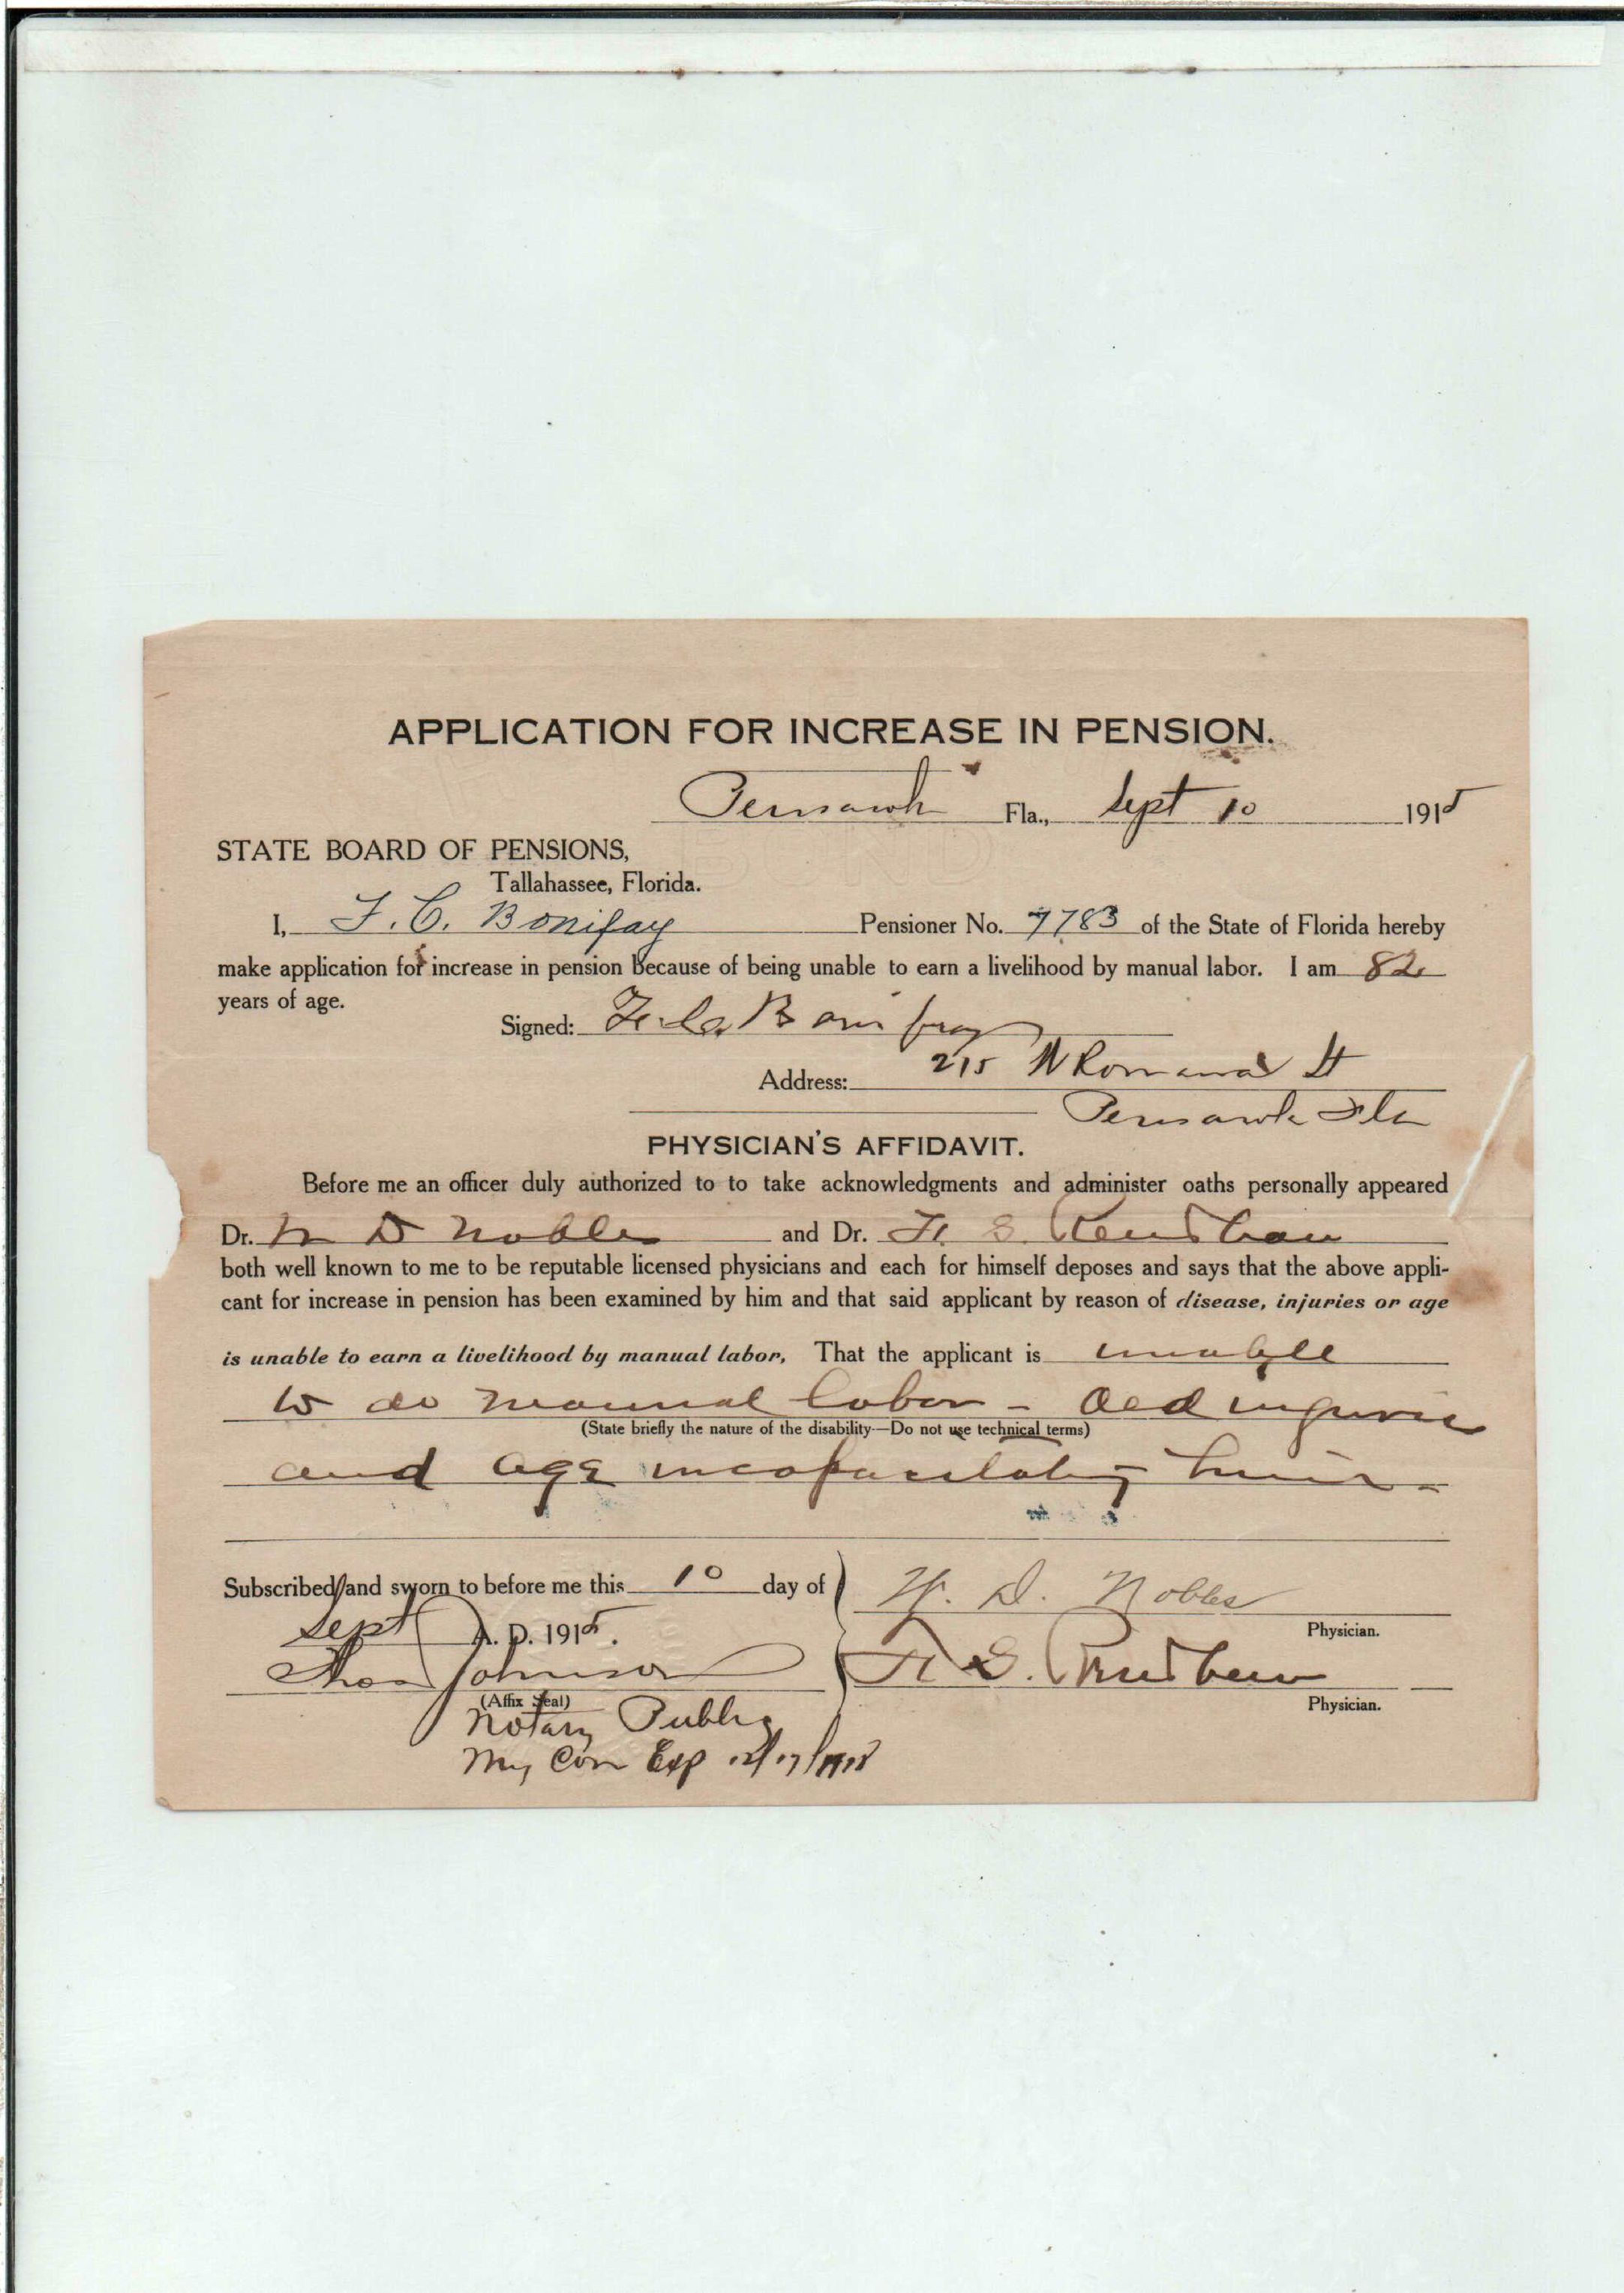 APPLICATION FOR INCREASE IN PENSION.
Pensacola Fla., Sept 10 1915
STATE BOARD OF PENSIONS,
Tallahassee, Florida.
I, F. C. Bonifay Pensioner No. 7783 of the State of Florida hereby
make application for increase in pension because of being unable to earn a livelihood by manual labor. I am 82
years of age.
Signed: Bonifay
Address: 215 W Romana St
Pensacola Fla
PHYSICIAN'S AFFIDAVIT.
Before me an officer duly authorized to to take acknowledgments and administer oaths personally appeared
Dr. D Nobles and Dr. S.
both well known to me to be reputable licensed physicians and each for himself deposes and says that the above appli-
cant for increase in pension has been examined by him and that said applicant by reason of disease, injuries or age
is unable to earn a livelihood by manual labor, That the applicant is unable
to do manual labor - Old injuries
(State briefly the nature of the disability—Do not use technical terms)
and age incapacitating him -
Subscribed and sworn to before me this 10 day of
Sept A. D. 1915.
W. D. Nobles
Physician.
Thos Johnson
S.
(Affix Seal)
Physician.
Notary Public
My Com Exp 12/17/1918